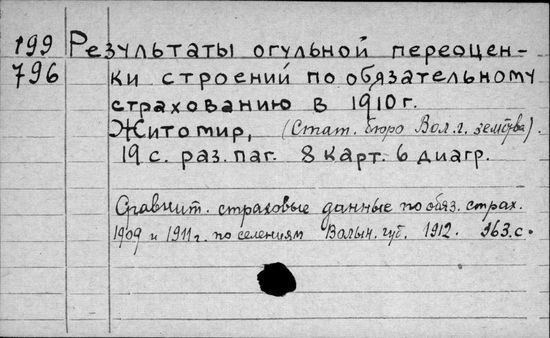 199 Результаты огульной переоцен-
796 ки строений по обязательному
страхованию в 1910 г.
Житомир, (Стат. бюро Вол. г. земства).
19 с. раз. паг. 8 карт. 6 диагр.
Сравнит. страховые данные по обяз. страх.
1909 и 1911 г. по селениям Волын. губ. 1912. 963 с.